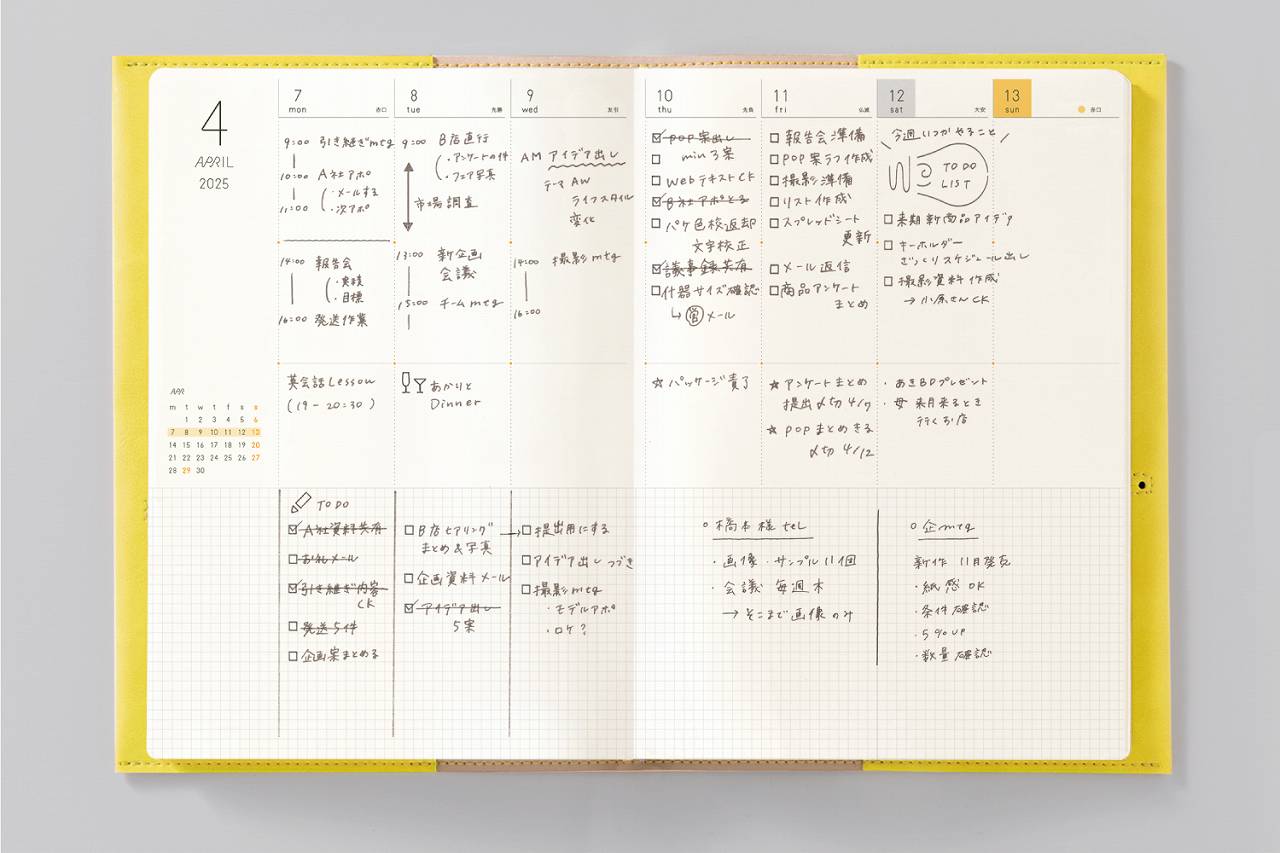 4
APRIL
2025
APR
m t w t f s s
1 2 3 4 5 6
7 8 9 10 11 12 13
14 15 16 17 18 19 20
21 22 23 24 25 26 27
28 29 30
7
mon 赤口
9:00 引き継ぎmtg
10:00 A社アポ
・メールする
・次アポ
11:00
14:00 報告会
・実積
・目標
16:00 発送作業
英会話Lesson
(19-20:30)
TODO
A社資料共有
お礼メール
引き継ぎ内容
CK
発送5件
企画案まとめる
8
tue 先勝
9:00 B店直行
・アンケートの件
・フェア写真
市場調査
13:00 新企画
会議
15:00 チームmtg
あかりと
Dinner
B店ヒアリング
まとめ&写真
企画資料メール
アイデア出し
5案
9
wed 友引
AM アイデア出し
テーマ AW
ライフスタイル
変化
14:00 撮影mtg
16:00
→提出用にする
アイデア出しつづき
撮影mtg
・モデルアポ
・ロケ?
10
thu 先負
POP案出し
min 3案
WebテキストCK
B社アポとる
パケ色校返却
文字校正
議事録共有
什器サイズ確認
メール
☆パッケージ責了
11
fri 仏滅
報告会準備
POP案ラフ作成
撮影準備
リスト作成
スプレッドシート
更新
メール返信
商品アンケート
まとめ
★アンケートまとめ
提出〆切4/17
★POPまとめきる
〆切4/12
12
sat 大安
13
sun 赤口
今週いつかやること
TO DO
LIST
来期新商品アイデア
キーホルダー
ざっくりスケジュール出し
撮影資料作成
→小原さんCK
・あきBDプレゼント
・母 来月来るとき
行くお店
○橋本様tel
・画像・サンプル11個
・会議 毎週木
→そこまで画像のみ
○企mtg
新作 11月発売
・紙感OK
・条件確認
・5%UP
・数量確認